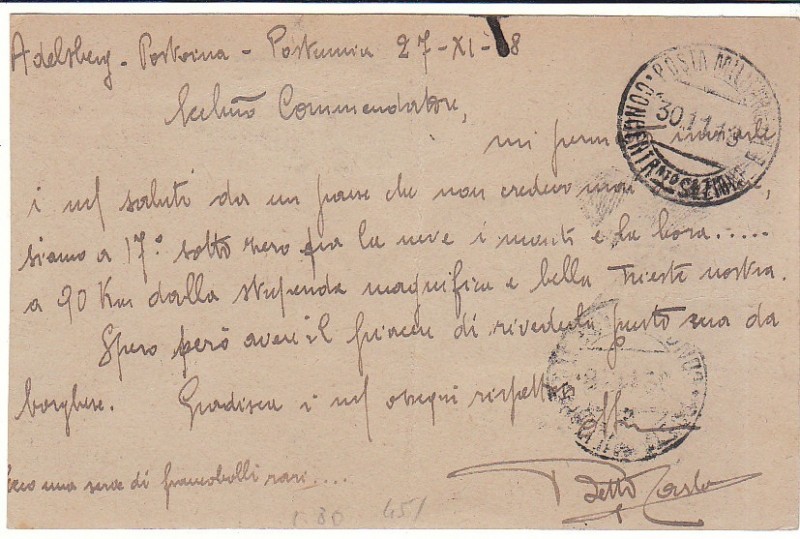 Adelsberg - Postoina - Postumia 27-XI-18
Commendatore,
mi inviarle
i saluti da un paese che non credevo mai
siamo a 17° sotto zero fra la neve i monti e la bora.....
a 90 Km dalla stupenda magnifica e bella Trieste nostra.
Spero però avere il piacere di rivederla presto da
borghese. Gradisca i ossequi
una serie di francobolli rari....
POSTA MILITARE
CONCENTRATO SEZIONE
30.11.18